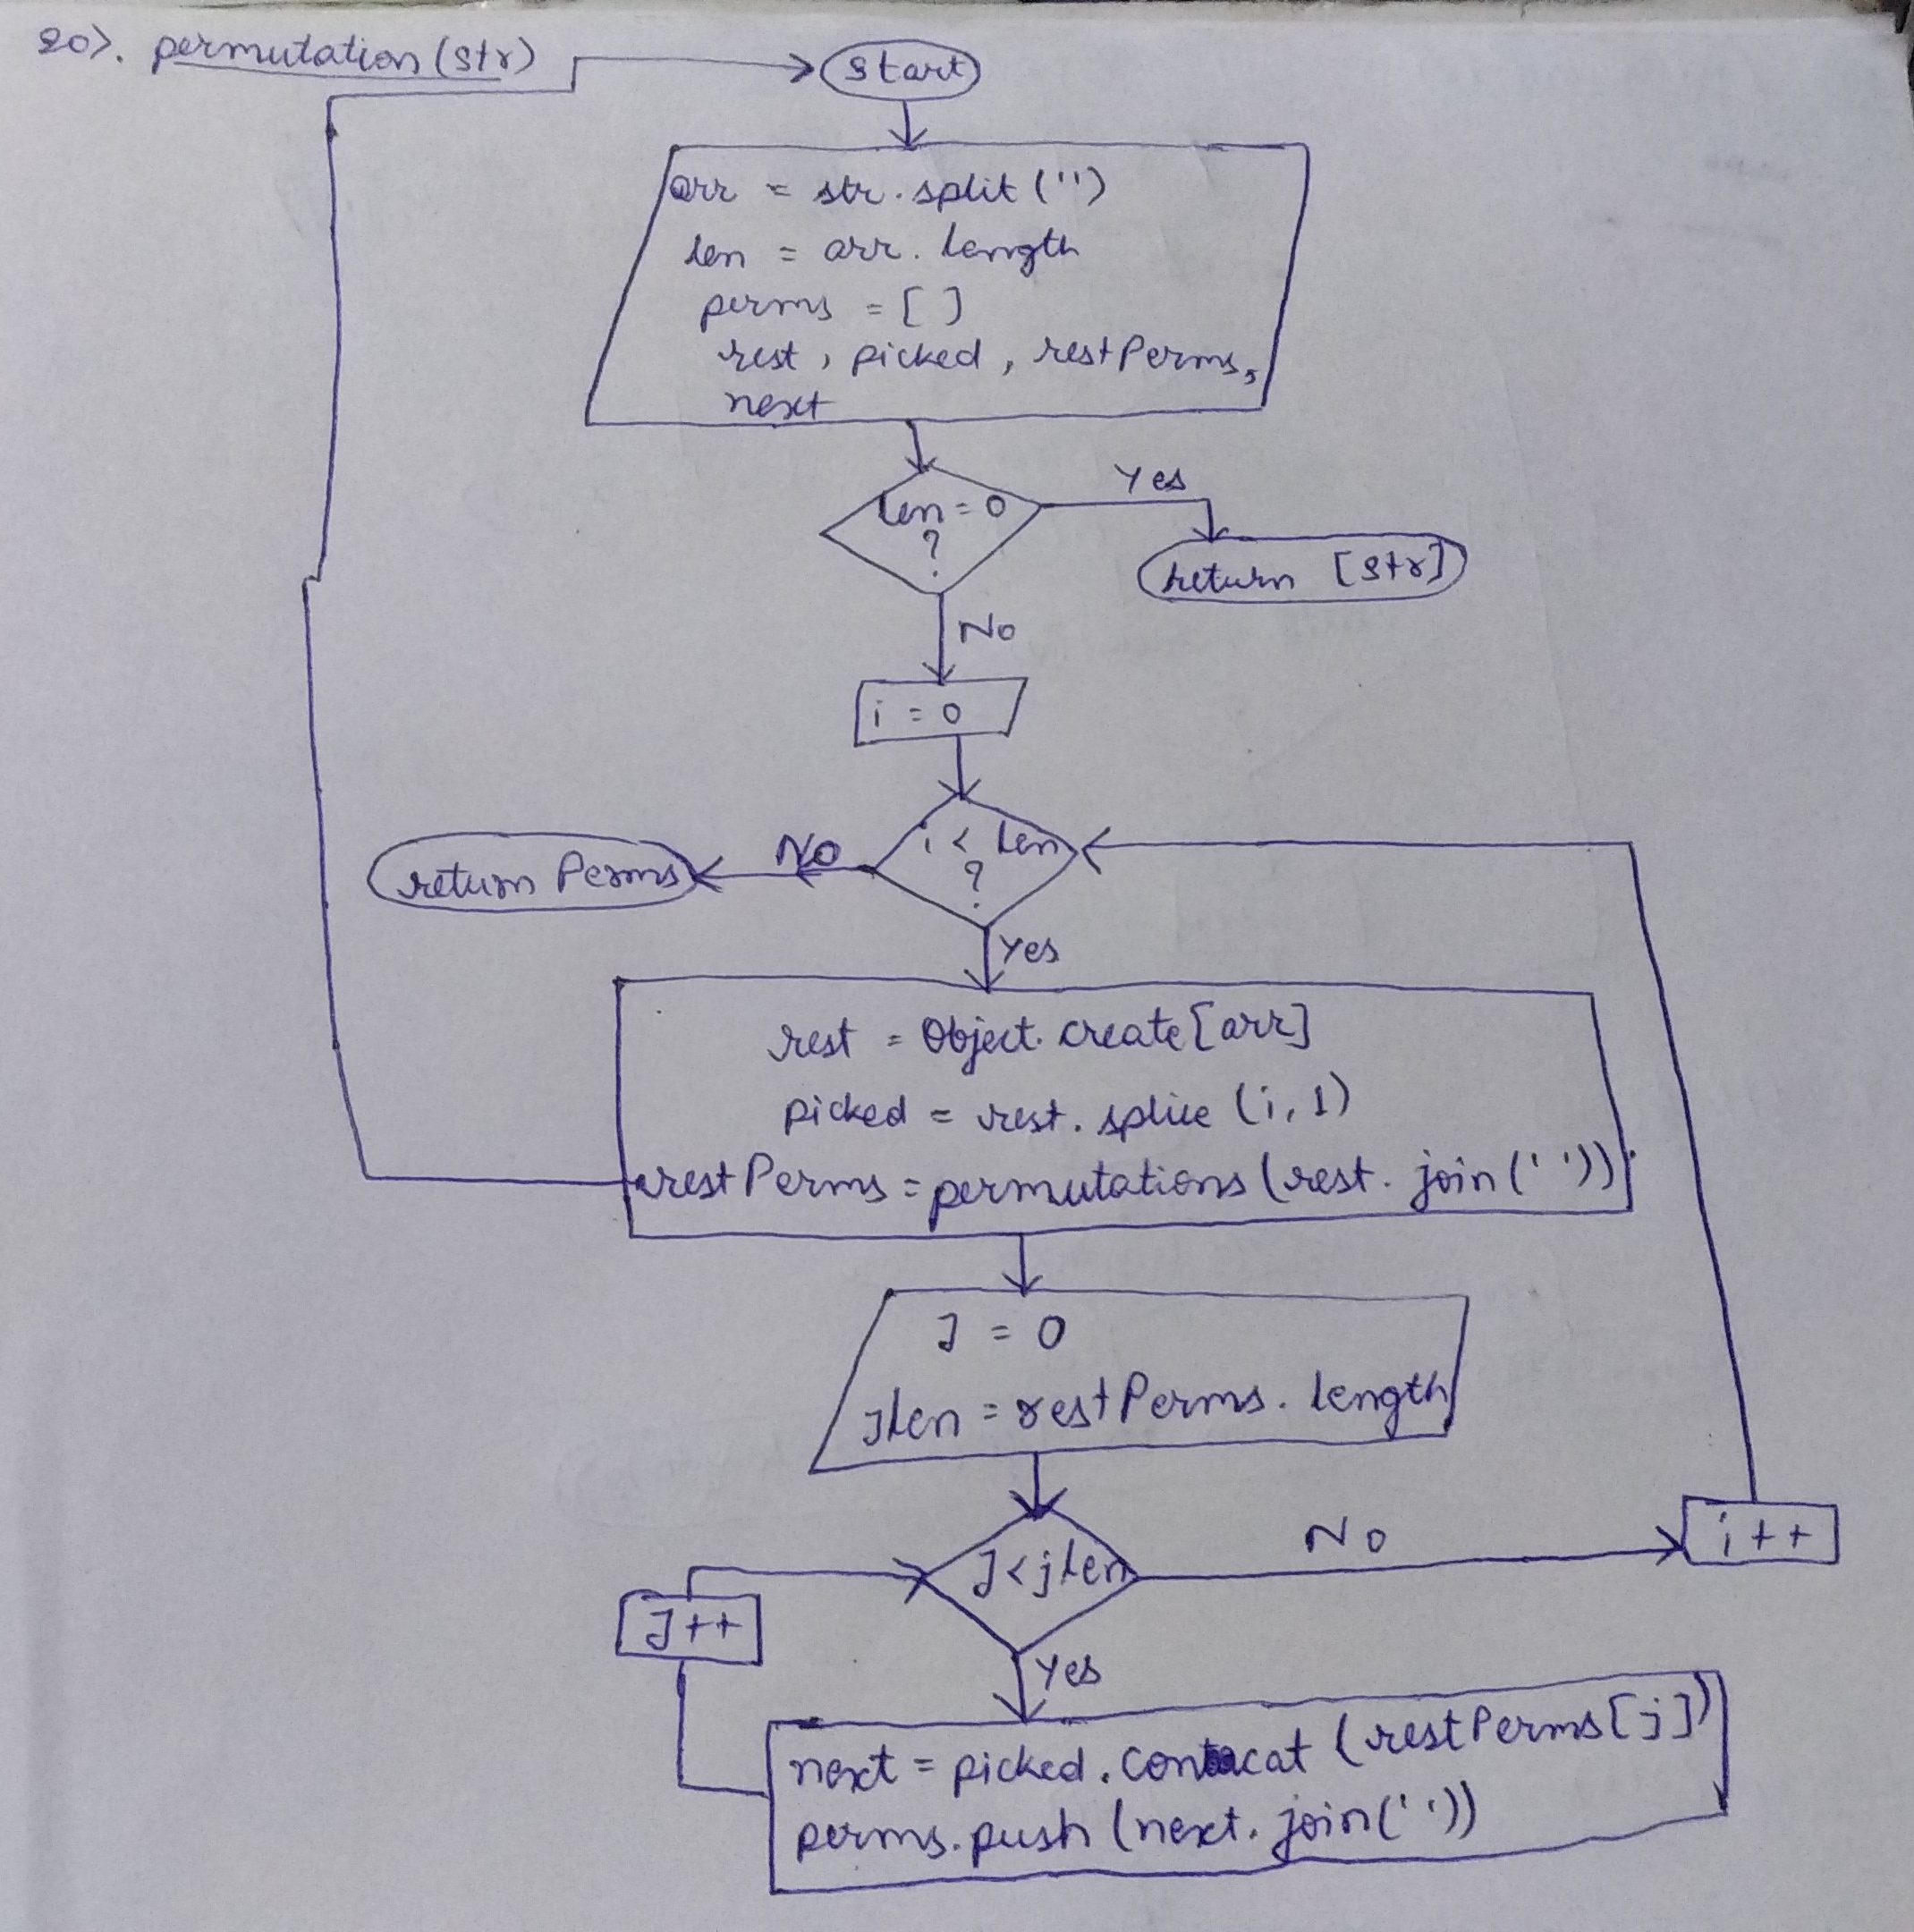 20). permutation (str)
start
arr = str.split('')
len = arr.length
perms = [ ]
rest, picked, restPerms,
next
len = 0
?
Yes
return [str]
No
i = 0
i < len
?
No
return Perms
Yes
rest = Object.create[arr]
picked = rest.splice (i, 1)
restPerms = permutations (rest.join(''))
J = 0
Jlen = restPerms.length
J < jlen
No
i++
J++
Yes
next = picked.concat (restPerms[j])
perms.push (next.join(''))